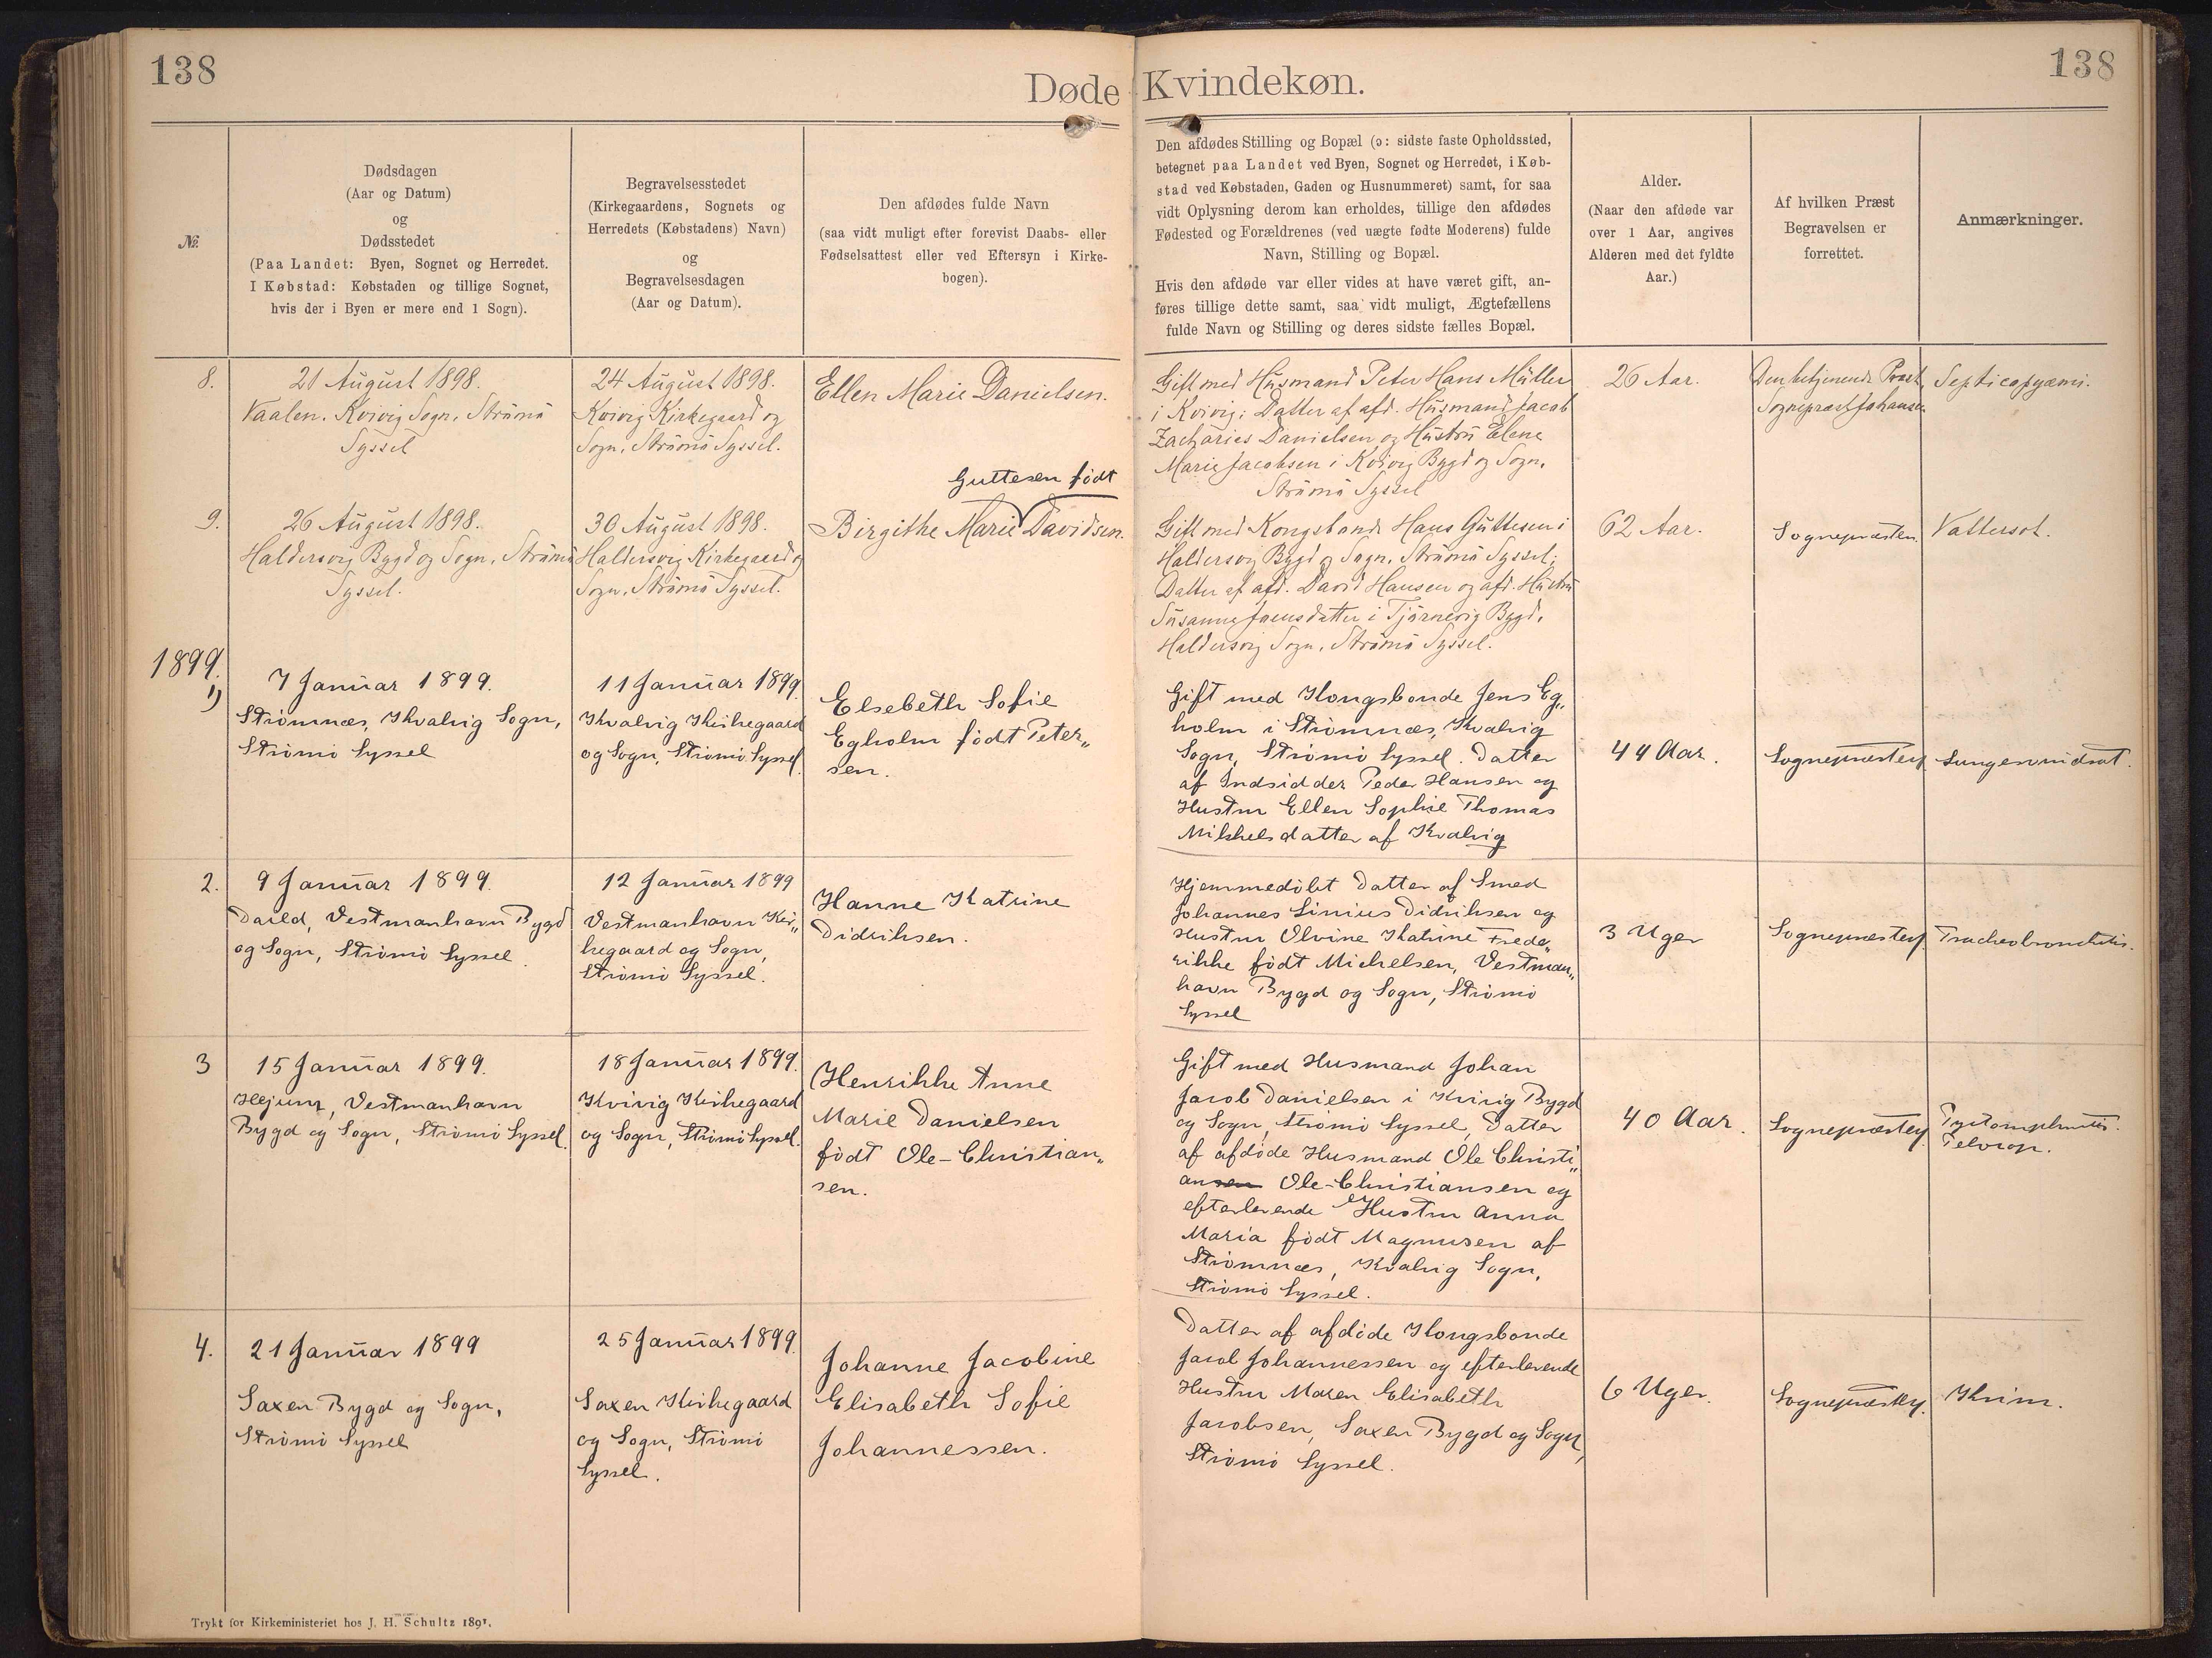 138
138
Døde Kvindekøn.
№.
Dødsdagen
(Aar og Datum)
og
Dødsstedet
(Paa Landet: Byen, Sognet og Herredet.
I Købstad: Købstaden og tillige Sognet,
hvis der i Byen er mere end 1 Sogn).
Begravelsesstedet
(Kirkegaardens, Sognets og
Herredets (Købstadens) Navn)
og
Begravelsesdagen
(Aar og Datum).
Den afdødes fulde Navn
(saa vidt muligt efter forevist Daabs- eller
Fødselsattest eller ved Eftersyn i Kirke-
bogen).
Den afdødes Stilling og Bopæl (ɔ: sidste faste Opholdssted,
betegnet paa Landet ved Byen, Sognet og Herredet, i Køb-
stad ved Købstaden, Gaden og Husnummeret) samt, for saa
vidt Oplysning derom kan erholdes, tillige den afdødes
Fødested og Forældrenes (ved uægte fødte Moderens) fulde
Navn, Stilling og Bopæl.
Hvis den afdøde var eller vides at have været gift, an-
føres tillige dette samt, saa vidt muligt, Ægtefællens
fulde Navn og Stilling og deres sidste fælles Bopæl.
Alder.
(Naar den afdøde var
over 1 Aar, angives
Alderen med det fyldte
Aar.)
Af hvilken Præst
Begravelsen er
forrettet.
Anmærkninger.
8.
21 August 1898.
Vaalen. Kvivig Sogn, Strömö
Syssel
24 August 1898.
Kvivig Kirkegaard og
Sogn, Strömö Syssel.
Ellen Marie Danielsen.
Gift med Husmand Peter Hans Müller
i Kvivig; Datter af afd. Husmand Jacob
Zacharies Danielsen og Hustru Elene
Marie Jacobsen i Kvivig Bygd og Sogn,
Strömö Syssel
26 Aar.
Den betjenende Præst,
Sognepræst Johansen
Septicopyæmi.
9.
26 August 1898.
Haldersvig Bygd og Sogn, Strömö
Syssel.
30 August 1898.
Haldersvig Kirkegaard og
Sogn, Strömö Syssel.
Guttesen födt
Birgithe Marie Davidsen.
Gift med Kongsbonde Hans Guttesen i
Haldersvig Bygd og Sogn, Strömö Syssel;
Datter af afd. David Hansen og afd. Hustru
Susanne Joensdatter i Tjörnevig Bygd,
Haldersvig Sogn, Strömö Syssel.
62 Aar.
Sognepræsten.
Vattersot.
1899.
1)
7 Januar 1899.
Strömnæs, Kvalvig Sogn,
Strömö Syssel
11 Januar 1899.
Kvalvig Kirkegaard
og Sogn, Strömö Syssel.
Elsebeth Sofie
Egholm födt Peter„
sen.
Gift med Kongsbonde Jens Eg„
holm i Strömnæs, Kvalvig
Sogn, Strömö Syssel. Datter
af Indsidder Peder Hansen og
Hustru Ellen Sophie Thomas
Mikkelsdatter af Kvalvig
44 Aar.
Sognepræsten.
Lungesvindsot.
2.
9 Januar 1899.
Vestmanhavn Bygd
og Sogn, Strömö Syssel
12 Januar 1899
Vestmanhavn Kir„
kegaard og Sogn,
Strömö Syssel.
Hanne Katrine
Didriksen.
Hjemmedöbt Datter af Smed
Johannes Sinius Didriksen og
Hustru Olvine Katrine Frede„
rikke födt Michelsen, Vestman„
havn Bygd og Sogn, Strömö
Syssel
3 Uger
Sognepræsten.
Tracheobronchitis.
3
15 Januar 1899.
Vestmanhavn
Bygd og Sogn, Strömö Syssel.
18 Januar 1899.
Kvivig Kirkegaard
og Sogn, Strömö Syssel.
Henrikke Anne
Marie Danielsen
födt Ole-Christian„
sen.
Gift med Husmand Johan
Jacob Danielsen i Kvivig Bygd
og Sogn, Strömö Syssel, Datter
af afdöde Husmand Ole Christi„
ansen Ole-Christiansen og
efterlevende Hustru Anna
Maria födt Magnusen af
Strömnæs, Kvalvig Sogn,
Strömö Syssel.
40 Aar.
Sognepræsten.
4.
21 Januar 1899
Saxen Bygd og Sogn,
Strömö Syssel
25 Januar 1899.
Saxen Kirkegaard
og Sogn, Strömö
Syssel.
Johanne Jacobine
Elisabeth Sofie
Johannessen.
Datter af afdöde Kongsbonde
Jacob Johannessen og efterlevende
Hustru Maren Elisabeth
Jacobsen, Saxen Bygd og Sogn,
Strömö Syssel.
6 Uger.
Sognepræsten.
Krim.
Trykt for Kirkeministeriet hos J. H. Schultz 1891.